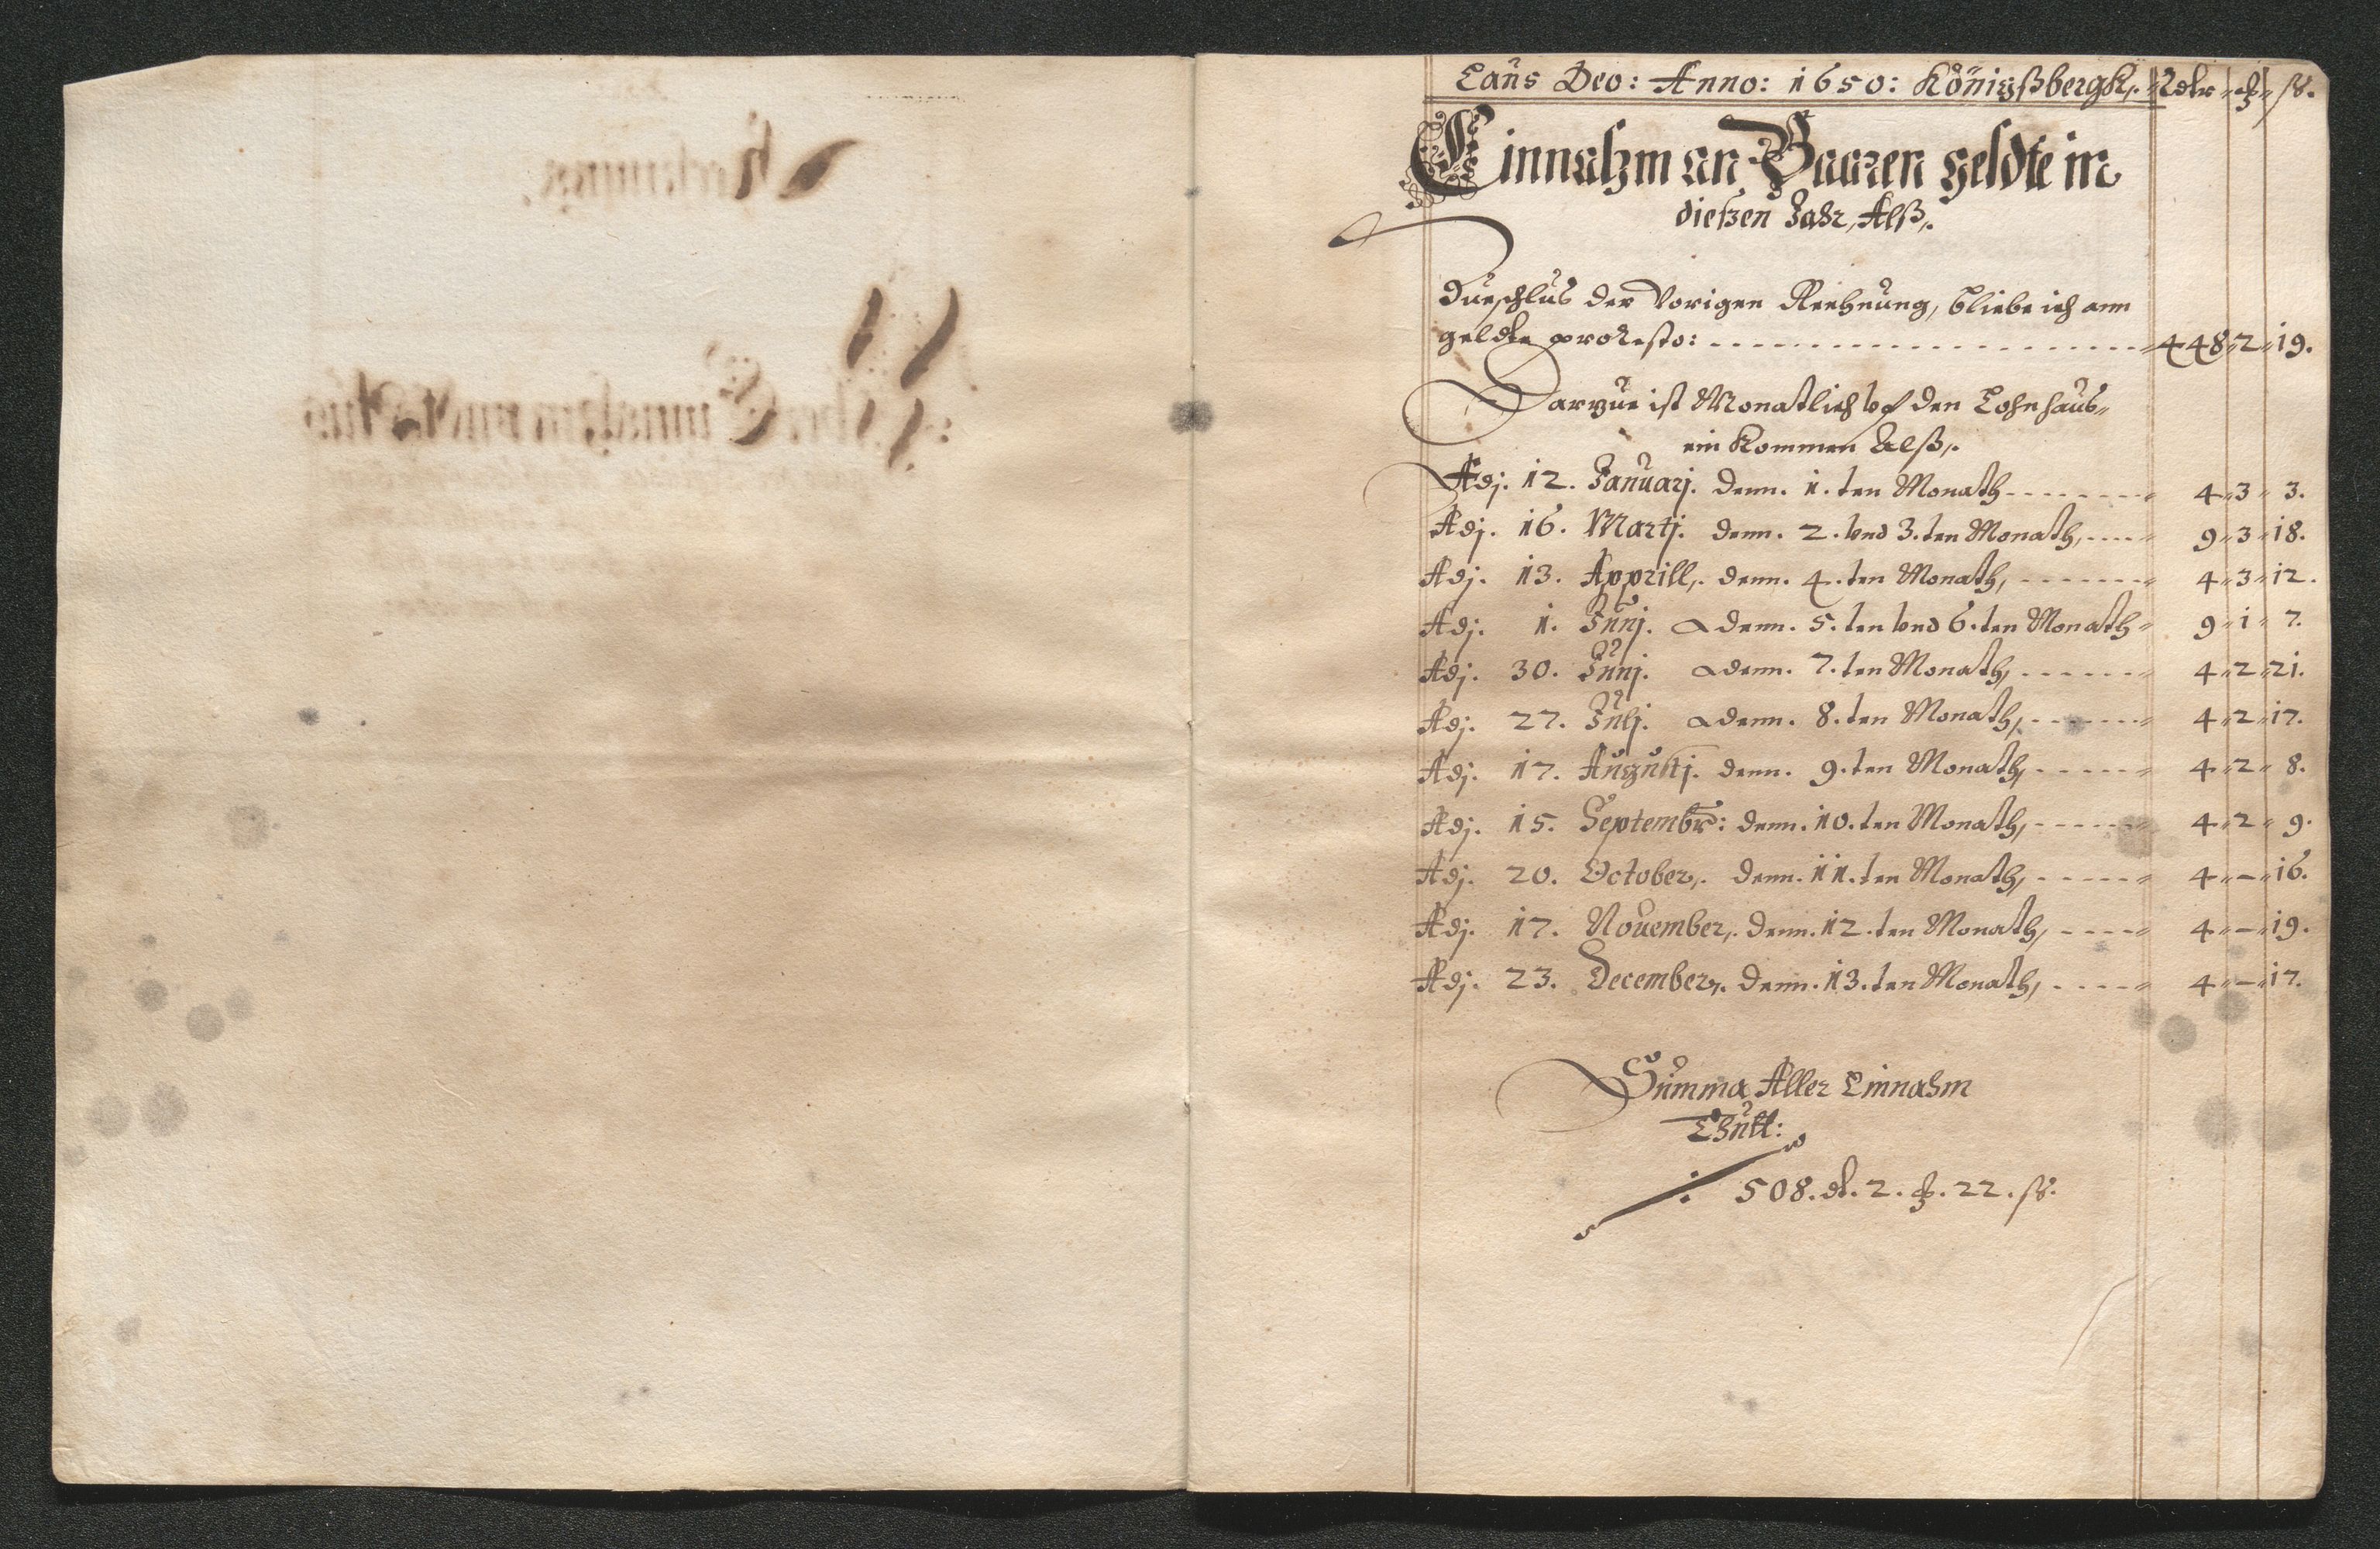 Laus Deo: Anno: 1650: Königßbergk,. Rdlr ß.
Einnahm an Baaren geldte in
dießen Jahr, Alß,.
der Vorigen Rechnung, bliebe ich ann
geldte pro resto: 448 2 19.
Darzue ist Monatlich vf den Lohnhaus
ein kommen Alß,.
Adj. 12. Januarj. denn. 1. ten Monath 4 3 3.
Adj. 16. Martj. denn. 2. vnd 3. ten Monath, 9 3 18.
Adj. 13. Apprill,. denn. 4. ten Monath, 4 3 12.
Adj. 1. Junj. denn. 5. ten vnd 6. ten Monath 9 1 7.
Adj. 30. Junj. denn. 7. ten Monath, 4 2 21.
Adj. 27. Julj. denn. 8. ten Monath, 4 2 17.
Adj. 17. Augustj. denn. 9. ten Monath, 4 2 8.
Adj. 15. Septembr: denn. 10. ten Monath, 4 2 9.
Adj. 20. October,. denn. 11. ten Monath, 4 – 16.
Adj. 17. Nouember,. denn. 12. ten Monath, 4 – 19.
Adj. 23. December,. denn. 13. ten Monath, 4 – 17.
Summa Aller Einnahm
Thutt:
508. dl. 2. 22. ß.